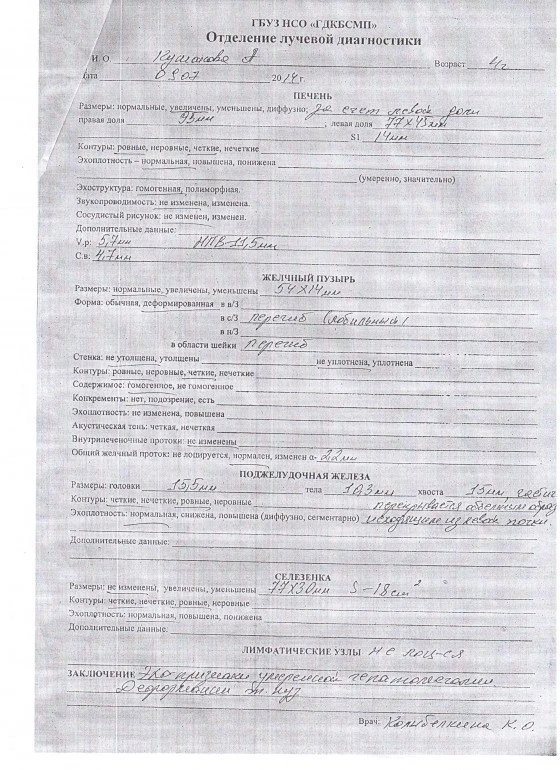 ГБУЗ НСО «ГДКБСМП»
Отделение лучевой диагностики
И. О. Возраст 4г
Дата 09.07 2014 г.
ПЕЧЕНЬ
Размеры: нормальные, увеличены, уменьшены, диффузно, за счет левой доли
правая доля 95мм , левая доля 77х45мм
S1 14мм
Контуры: ровные, неровные, четкие, нечеткие
Эхоплотность – нормальная, повышена, понижена
(умеренно, значительно)
Эхоструктура: гомогенная, полиморфная.
Звукопроводимость: не изменена, изменена.
Сосудистый рисунок: не изменен, изменен.
Дополнительные данные:
V.p: 5,7мм НПВ-11,5мм
С.в: 4,7мм
ЖЕЛЧНЫЙ ПУЗЫРЬ
Размеры: нормальные, увеличены, уменьшены 54х14мм
Форма: обычная, деформированная в в/3
в с/3 перегиб (лабильный)
в н/3
в области шейки перегиб
Стенка: не утолщена, утолщены не уплотнена, уплотнена
Контуры: ровные, неровные, четкие, нечеткие
Содержимое: гомогенное, не гомогенное
Конкременты: нет, подозрение, есть
Эхоплотность: не изменена, повышена
Акустическая тень: четкая, нечеткая
Внутрипеченочные протоки: не изменены
Общий желчный проток: не лоцируется, нормален, изменен d- 2,2мм
ПОДЖЕЛУДОЧНАЯ ЖЕЛЕЗА
Размеры: головки 15,5мм тела 10,3мм хвоста 15мм,
Контуры: четкие, нечеткие, ровные, неровные перекрывается объемным образ
Эхоплотность: нормальная, снижена, повышена (диффузно, сегментарно) исходящим из левой почки.
Дополнительные данные:
СЕЛЕЗЕНКА
Размеры: не изменены, увеличены, уменьшены 77х30мм S-18см²
Контуры: четкие, нечеткие, ровные, неровные
Эхоплотность: нормальная, повышена, понижена
Дополнительные данные:
ЛИМФАТИЧЕСКИЕ УЗЛЫ не лоц-ся
ЗАКЛЮЧЕНИЕ Эхопризнаки умеренной гепатомегалии.
Деформации ж. пуз
Врач: Колыбелкина К. О.